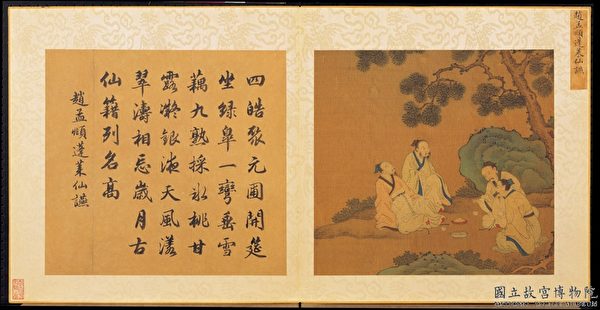 趙孟頫蓬萊仙讌
四皓聚元圃開筵
坐綠皋一彎垂雪
藕九熟採冰桃甘
露凝銀液天風漾
翠濤相忘歲月古
仙籍列名高
趙孟頫蓬萊仙讌
國立故宮博物院